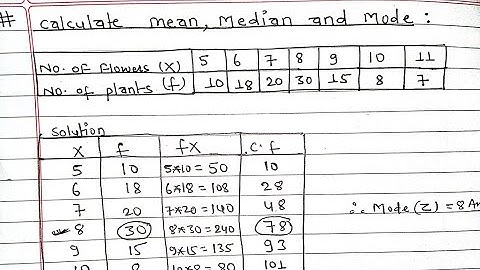 # Calculate mean, Median and Mode :
No. of flowers (X) 5 6 7 8 9 10 11
No. of plants (f) 10 18 20 30 15 8 7
Solution
X f fX C.f
5 10 5*10 = 50 10
6 18 6*18 = 108 28
7 20 7*20 = 140 48
8 30 8*30 = 240 78
∴ Mode (Z) = 8 An
9 15 9*15 = 135 93
10 8 10*8 = 80 101